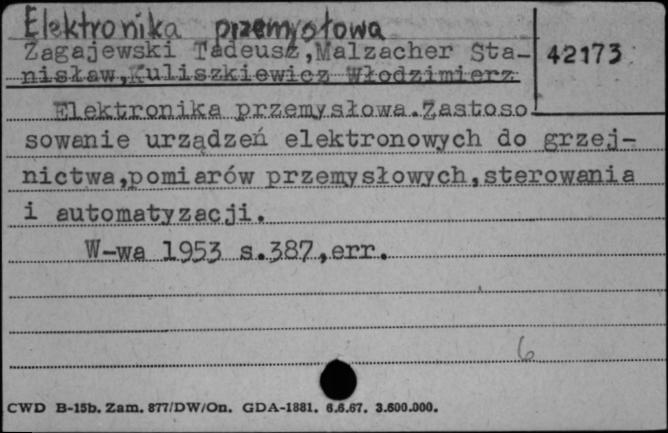 Elektronika przemysłowa
Zagajewski Tadeusz,Malzacher Sta-
nisław,Kuliszkiewicz Włodzimierz
42173
Elektronika przemysłowa.Zastoso
sowanie urządzeń elektronowych do grzej-
nictwa,pomiarów przemysłowych,sterowania
i automatyzacji.
W-wa 1953 s.387,err.
6
CWD B-15b. Zam. 877/DW/On. GDA-1881. 6.6.67. 3.600.000.